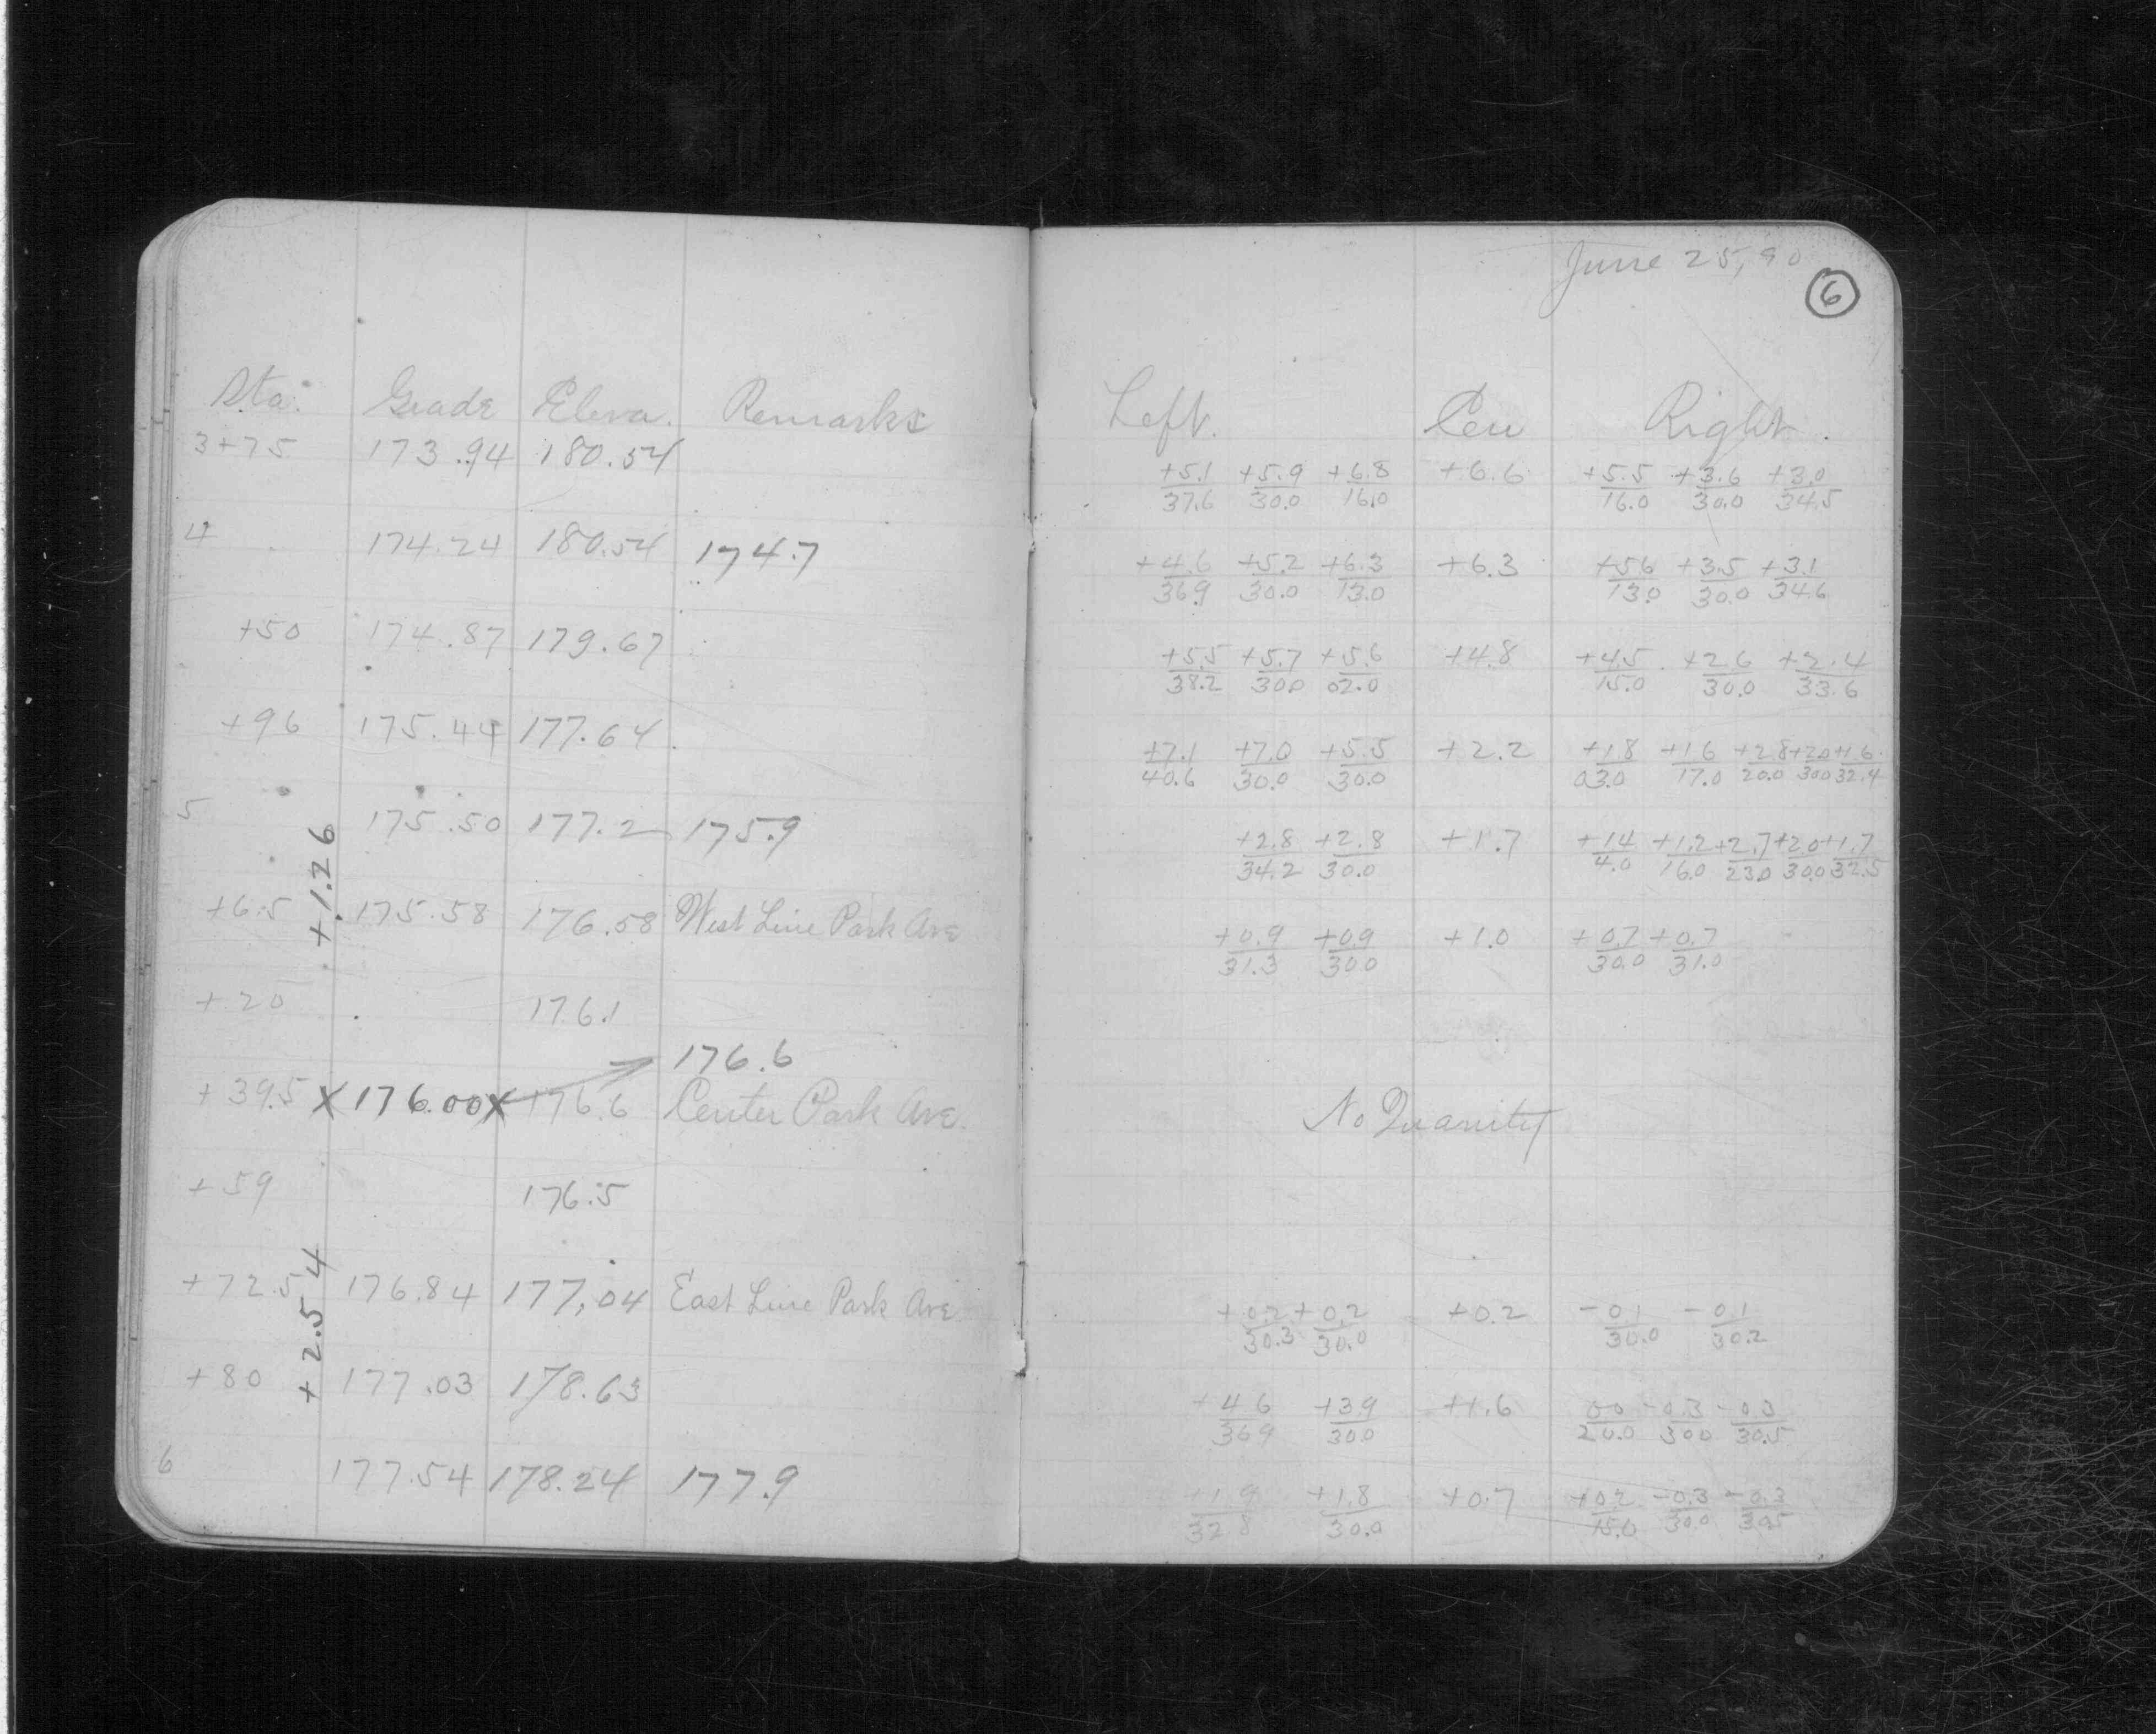 Sta. Grade Eleva. Remarks
3+75 173.94 180.54
4 174.24 180.54 174.7
+50 174.87 179.67
+96 175.44 177.64
5 175.50 177.2 175.9
+1.26
+6.5 175.58 176.58 West Line Park Ave
+20 176.1
176.6
+39.5 X 176.00 X 176.6 Center Park Ave.
+59 176.5
+2.54
+72.5 176.84 177,04 East Line Park Ave
+80 177.03 178.63
6 177.54 178.24 177.9
June 25, 90
6
Left. Cen Right.
+5.1 +5.9 +6.8 +6.6 +5.5 +3.6 +3.0
37.6 30.0 16.0 16.0 30.0 34.5
+4.6 +5.2 +6.3 +6.3 +5.6 +3.5 +3.1
36.9 30.0 13.0 13.0 30.0 34.6
+5.5 +5.7 +5.6 +4.8 +4.5 +2.6 +2.4
38.2 30.0 02.0 15.0 30.0 33.6
+7.1 +7.0 +5.5 +2.2 +1.8 +1.6 +2.8 +2.0 +1.6
40.6 30.0 30.0 03.0 17.0 20.0 30.0 32.4
+2.8 +2.8 +1.7 +1.4 +1.2 +2.7 +2.0 +1.7
34.2 30.0 4.0 16.0 23.0 30.0 32.5
+0.9 +0.9 +1.0 +0.7 +0.7
31.3 30.0 30.0 31.0
No Quanity
+0.2 +0.2 +0.2 -0.1 -0.1
30.3 30.0 30.0 30.2
+4.6 +3.9 +1.6 0.0 -0.3 -0.3
36.9 30.0 20.0 30.0 30.5
+1.9 +1.8 +0.7 +0.2 -0.3 -0.3
32.8 30.0 15.0 30.0 30.5